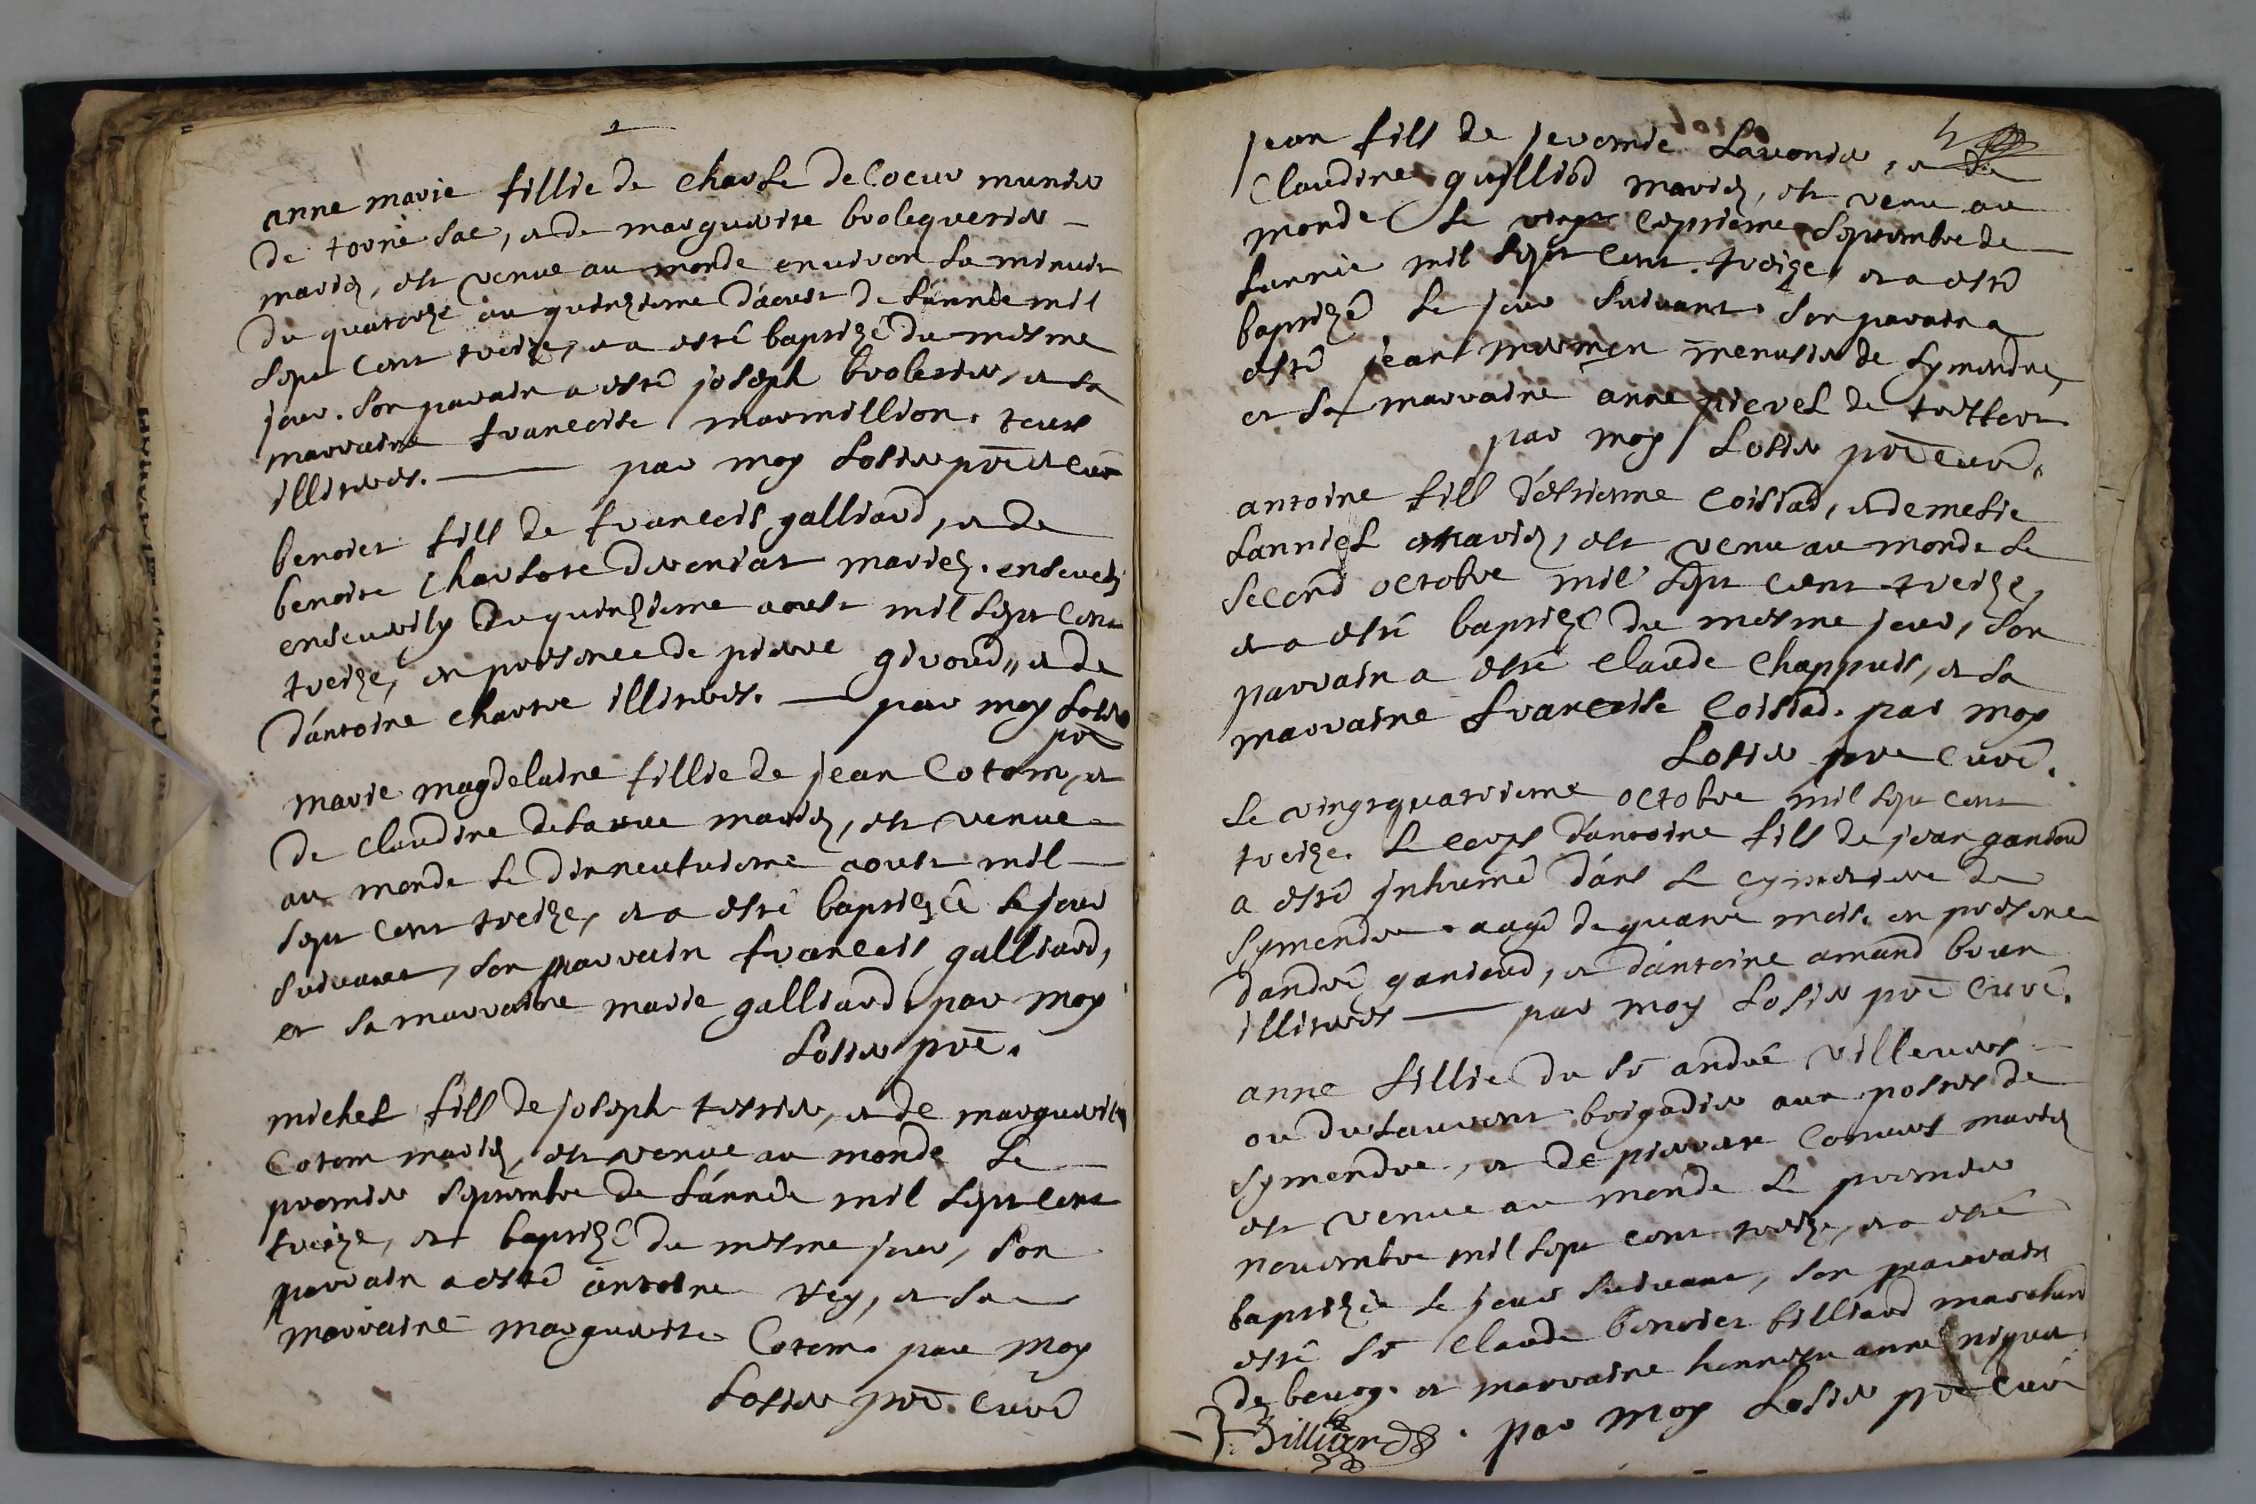 anne marie fillie de charle de Coeur munier
de torne sac, et de marguerite brolequerix
mariez, est venue au monde environ la minuit
du quatorze au quinzieme d'aoust de l'année mil
sept cent treize, et a esté baptizé du mesme
jour. son parain a esté joseph brolerix, et sa
marraine francoise marmillion. tous
illiteres. par moy Losier pre et curé
benoict fill de francois galliard, et de
benoite charlote diveriat mariez. enseveli
ensevely du quinzieme aoust mil sept cent
treize, en presence de pierre giroud, et de
d'antoine chartre illiteres. par moy Losier
pre
marie magdelaine fillie de jean Cotom, et
de claudine delarue mariez, est venue
au monde le dixneufvieme aoust mil
sept cent treize, et a esté baptizée le jour
suivant, son parrain francois galliard,
et sa marraine marie galliard. par moy
Losier pre.
michel fill de joseph terrier, et de marguerite
Cotom mariez, est venue au monde le
premier septembre de l'année mil sept cent
treize, et baptizé du mesme jour, son
parrain a esté antoine Vey, et sa
marraine marguerite Cotom. par moy
Losier pre. curé
jean fill de jeromie Lavonix, et de
Claudine guilliod mariez, est venu au
monde le vingt septieme septembre de
lannie mil sept cent treize, et a esté
baptizé le jour suivant. son parain a
esté jean mermen menusier de symendre,
et sa marraine anne pievel de treffort
par moy Losier pre curé.
antoine fill d'estienne Coisiad, et de melie
Lanniel mariez, est venu au monde le
second octobre mil sept cent treize,
et a esté baptizé du mesme jour, son
parrain a esté claude Chappuis, et sa
marraine francoise Coisiad. par moy
Losier pre curé.
Le vingtquatrieme octobre mil sept cent
treize. Le corps d'antoine fill de jean ganioud
a esté inhumé dans le cymetiere de
Symendre. aagé de quatre mois. en presence
dandré ganioud, et d'antoine amand brun
illiteres par moy Losier pre curé.
anne fillie du sr andré villevers
ou du lauvent brigadier aux postes de
symendre, et de pierrette Cornuet mariez
est venue au monde le premier
novembre mil sept cent treize, et a esté
baptizée le jour suivant, son parrain
esté sr claude benoict billiard marchand
de bourg. et marraine honneste anne niquet
Billiard. par moy Losier pre curé